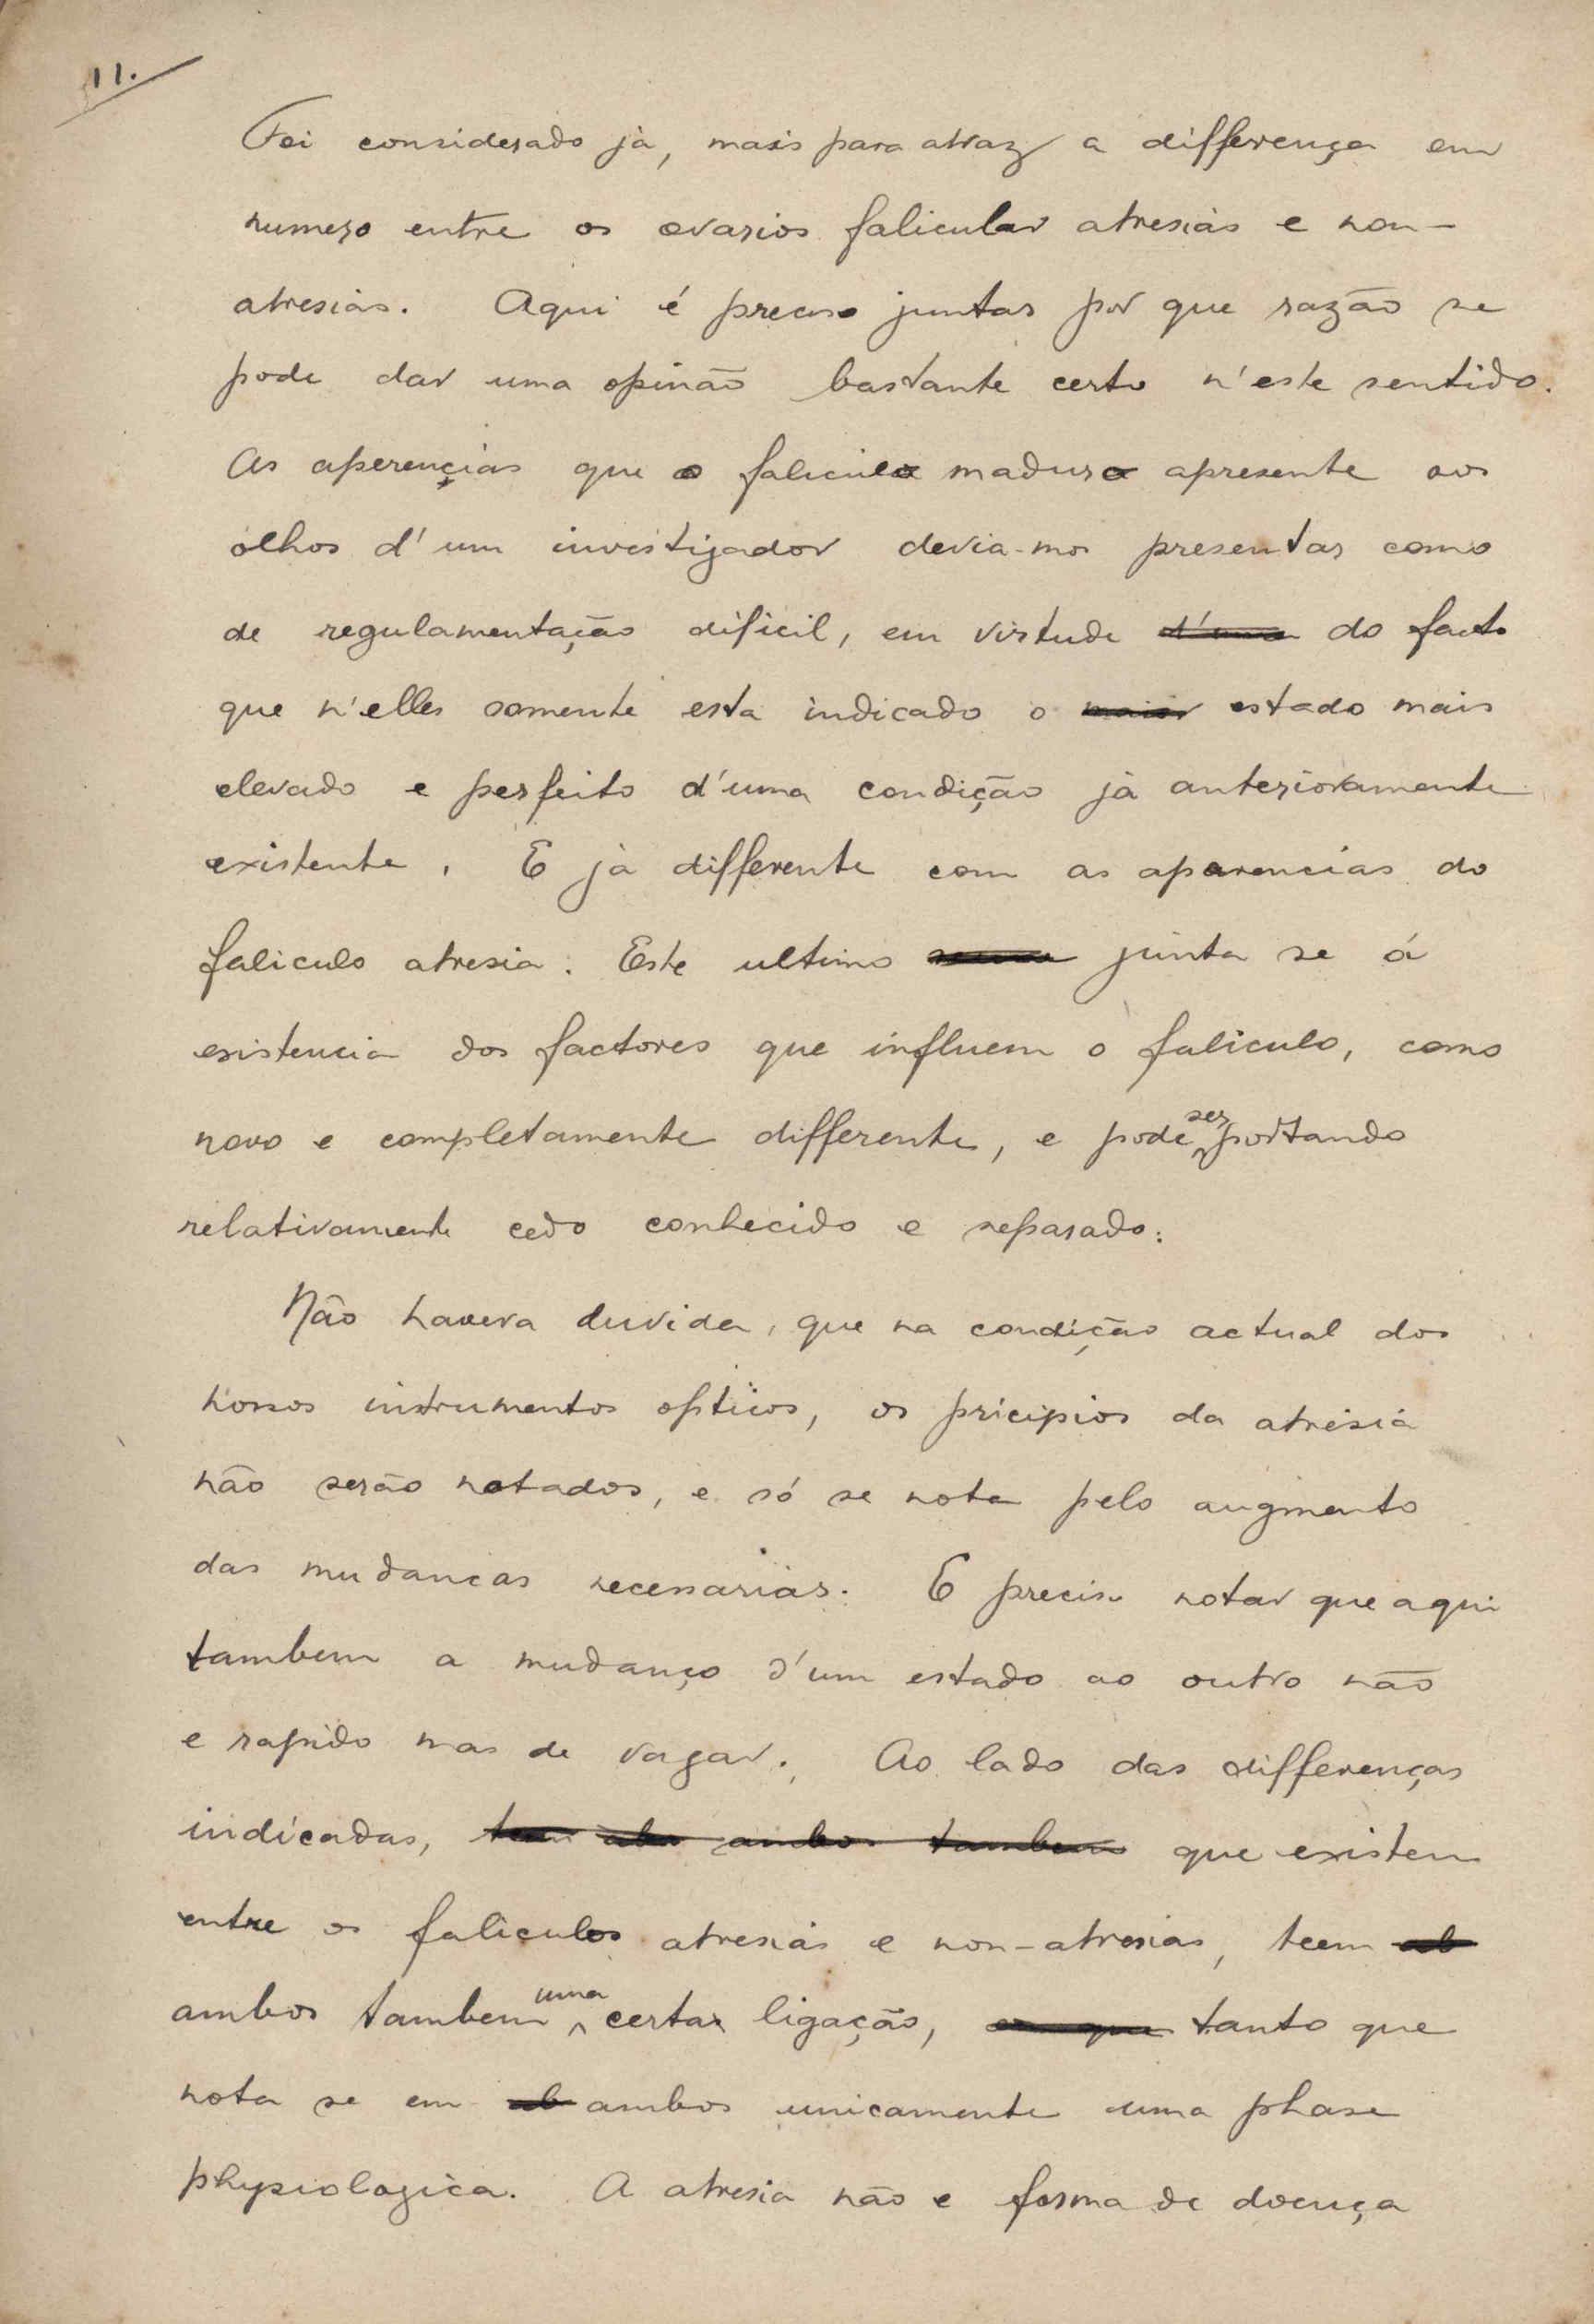 11.
Foi considerado jà, mais para atraz a differença em
numero entre os ovarios falicular atresias e non-
atresias. Aqui é preciso juntar por que razão se
pode dar uma opinão bastante certo n'este sentido.
As aperençias que o faliculo maduro apresente aos
olhos d'um investigador devia-mos presentar como
de regulamentação dificil, em virtude do facto
que n'elles somente esta indicado o estado mais
elevado e perfeito d'uma condição jà anterioramente
existente. E jà differente com as aparencias do
faliculo atresia. Este ultimo junta se á
existencia dos factores que influem o faliculo, como
novo e completamente differente, e pode ser portando
relativamente cedo conhecido e separado.
Não havera duvida, que na condição actual dos
nossos instrumentos opticos, os pricipios da atresia
não serão notados, e só se nota pelo augmento
das mudancas necessarias. E preciso notar que aqui
tambem a mudanço d'um estado ao outro não
e rapido mas de vagar. Ao lado das differenças
indicadas, tem ambos tambem que existem
entre os faliculos atresias e non-atresias, teem
ambos tambem uma certa ligação, tanto que
nota se em ambos unicamente uma phase
physiologica. A atresia não e forma de doença